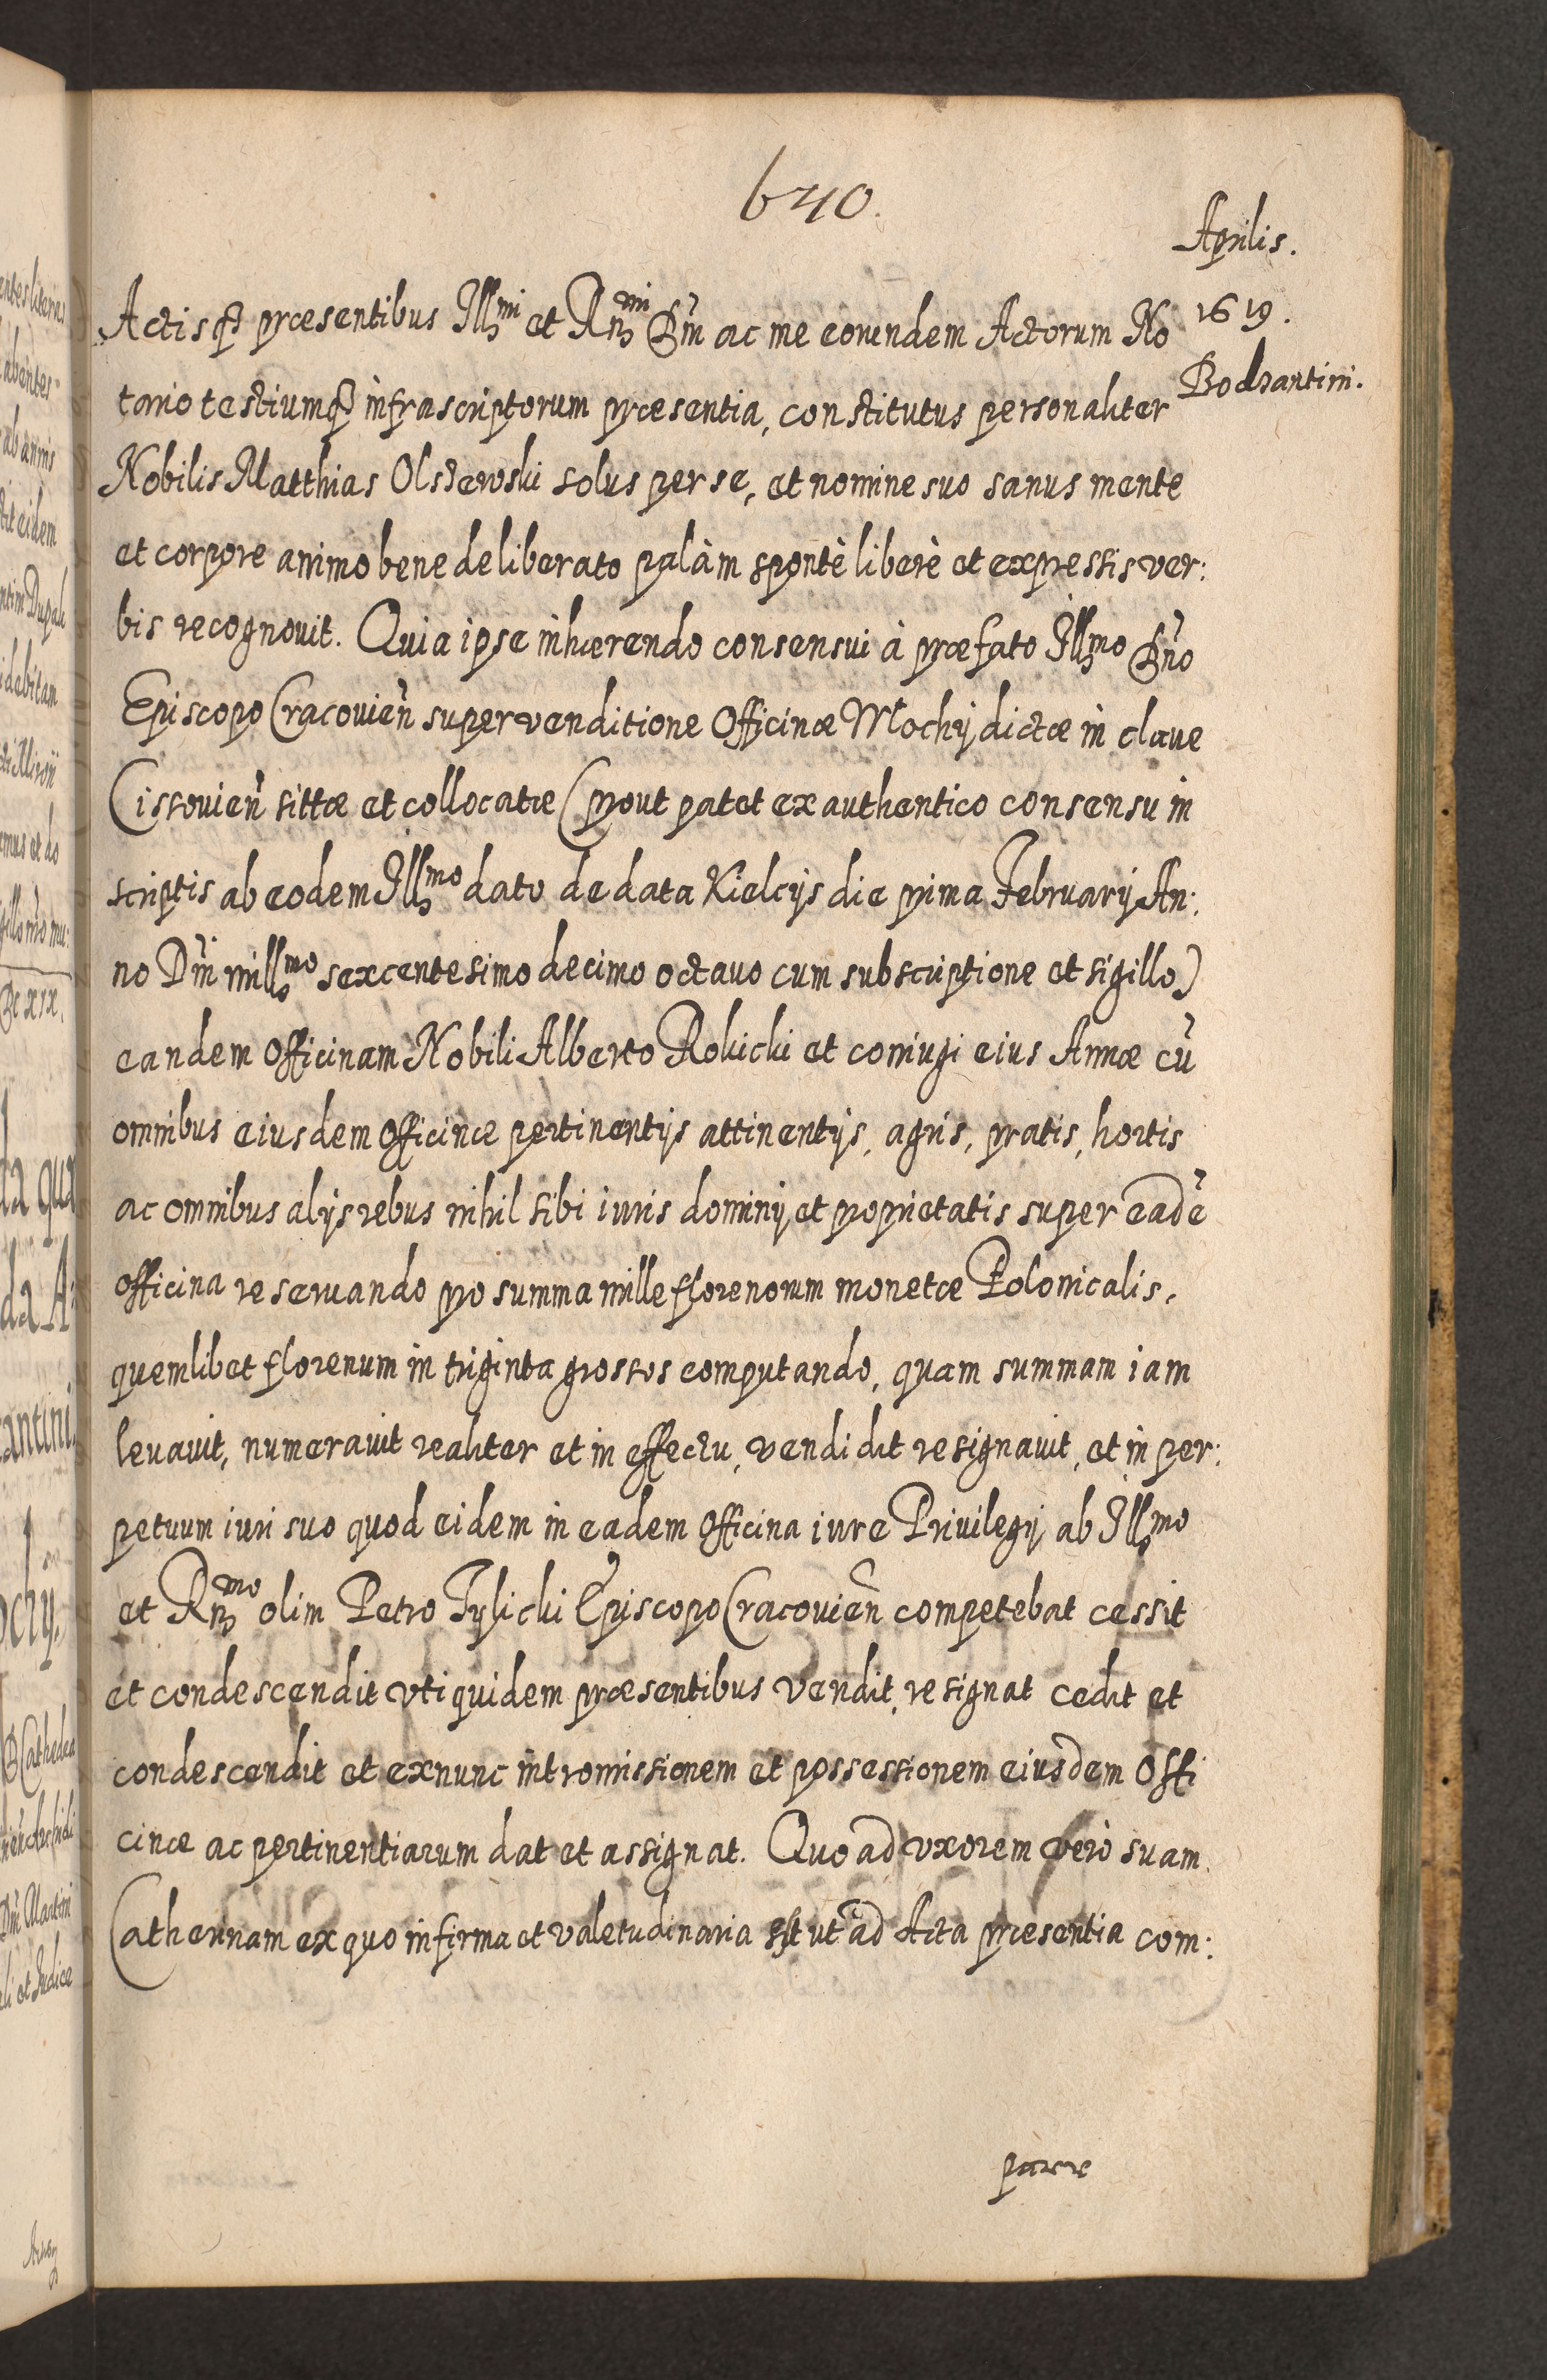 640.
Aprilis.
1619.
Bodzantini.
Actisq₃ præsentibus Illᵐⁱ et Rnᵐⁱ Dñi ac me eorundem Actorum No
tario testiumq₃ infrascriptorum præsentia, constitutus personaliter
Nobilis Matthias Olszewski solus per se, et nomine suo sanus mente
et corpore animo bene deliberato palàm spontè liberè et expressis ver:
bis recognovit. Quia ipse inhærendo consensui à præfato Illᵐᵒ Dño
Episcopo Cracovieñ super venditione Officinæ Mochÿ dictæ in clave
Cissovieñ sittæ et collocatæ (prout patet ex authentico consensu in
scriptis ab eodem Illᵐᵒ dato de data Kielcijs die prima Februarij An:
no Dñi millᵐᵒ sexcentesimo decimo octavo cum subscriptione et sigillo)
eandem Officinam Nobili Alberto Rokicki et coniugi eius Annæ cũ
omnibus eiusdem Officinæ pertinentijs attinentijs, agris, pratis, hortis
ac omnibus alijs rebus nihil sibi iuris dominij et proprietatis super eadẽ
officina reservando pro summa mille florenorum monetæ Polonicalis,
quemlibet florenum in triginta grossos computando, quam summam iam
levavit, numeravit realiter et in effectu, vendidit resignavit, et in per:
petuum iuri suo quod eidem in eadem Officina iure Privilegij ab Illᵐᵒ
et Rnᵐᵒ olim Petro Tylicki Episcopo Cracovieñ competebat cessit
et condescendit vti quidem præsentibus vendit, resignat cedit et
condescendit et exnunc intromissionem et possessionem eiusdem Offi
cinæ ac pertinentiarum dat et assignat. Quo ad vxorem verò suam
Catherinam ex quo infirma et valetudinaria est ut ad Acta præsentia com:
parere